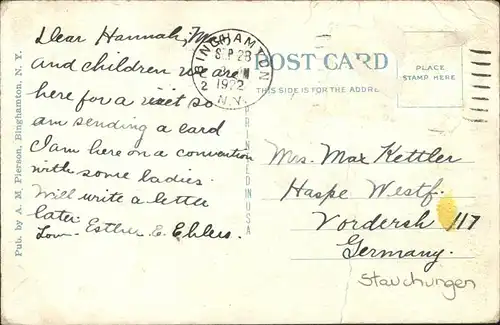 Dear Hannah, Max
and children we are
here for a visit so
am sending a card
I am here on a convention
with some ladies.
Will write a letter
later.
Esther E. Ehlers.
Pub. by A. M. Pierson, Binghamton, N. Y.
BINGHAMTON
SEP 28
1922
2
N.Y.
POST CARD
THIS SIDE IS FOR THE ADDRE
PLACE
STAMP HERE
PRINTED IN USA
Mrs. Max Kettler
Haspe Westf.
Vordersh 117
Germany.
Stauchungen